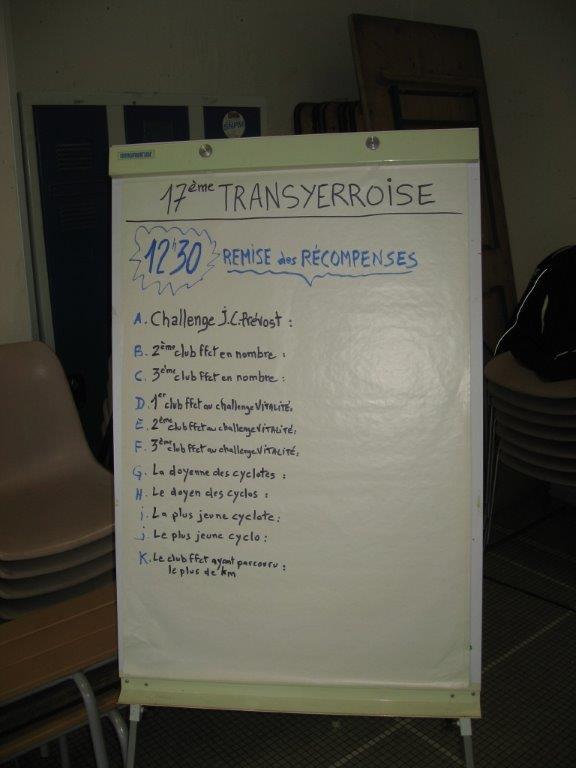 17ème TRANSYERROISE
12h30 REMISE des RÉCOMPENSES
A. Challenge J.C. Prévost :
B. 2ème club ffct en nombre :
C. 3ème club ffct en nombre :
D. 1er club ffct au challenge VITALITÉ:
E. 2ème club ffct au challenge VITALITÉ:
F. 3ème club ffct au challenge VITALITÉ:
G. La doyenne des cyclotes :
H. Le doyen des cyclos :
i. La plus jeune cyclote :
j. Le plus jeune cyclo :
K. Le club ffct ayant parcouru :
le plus de km